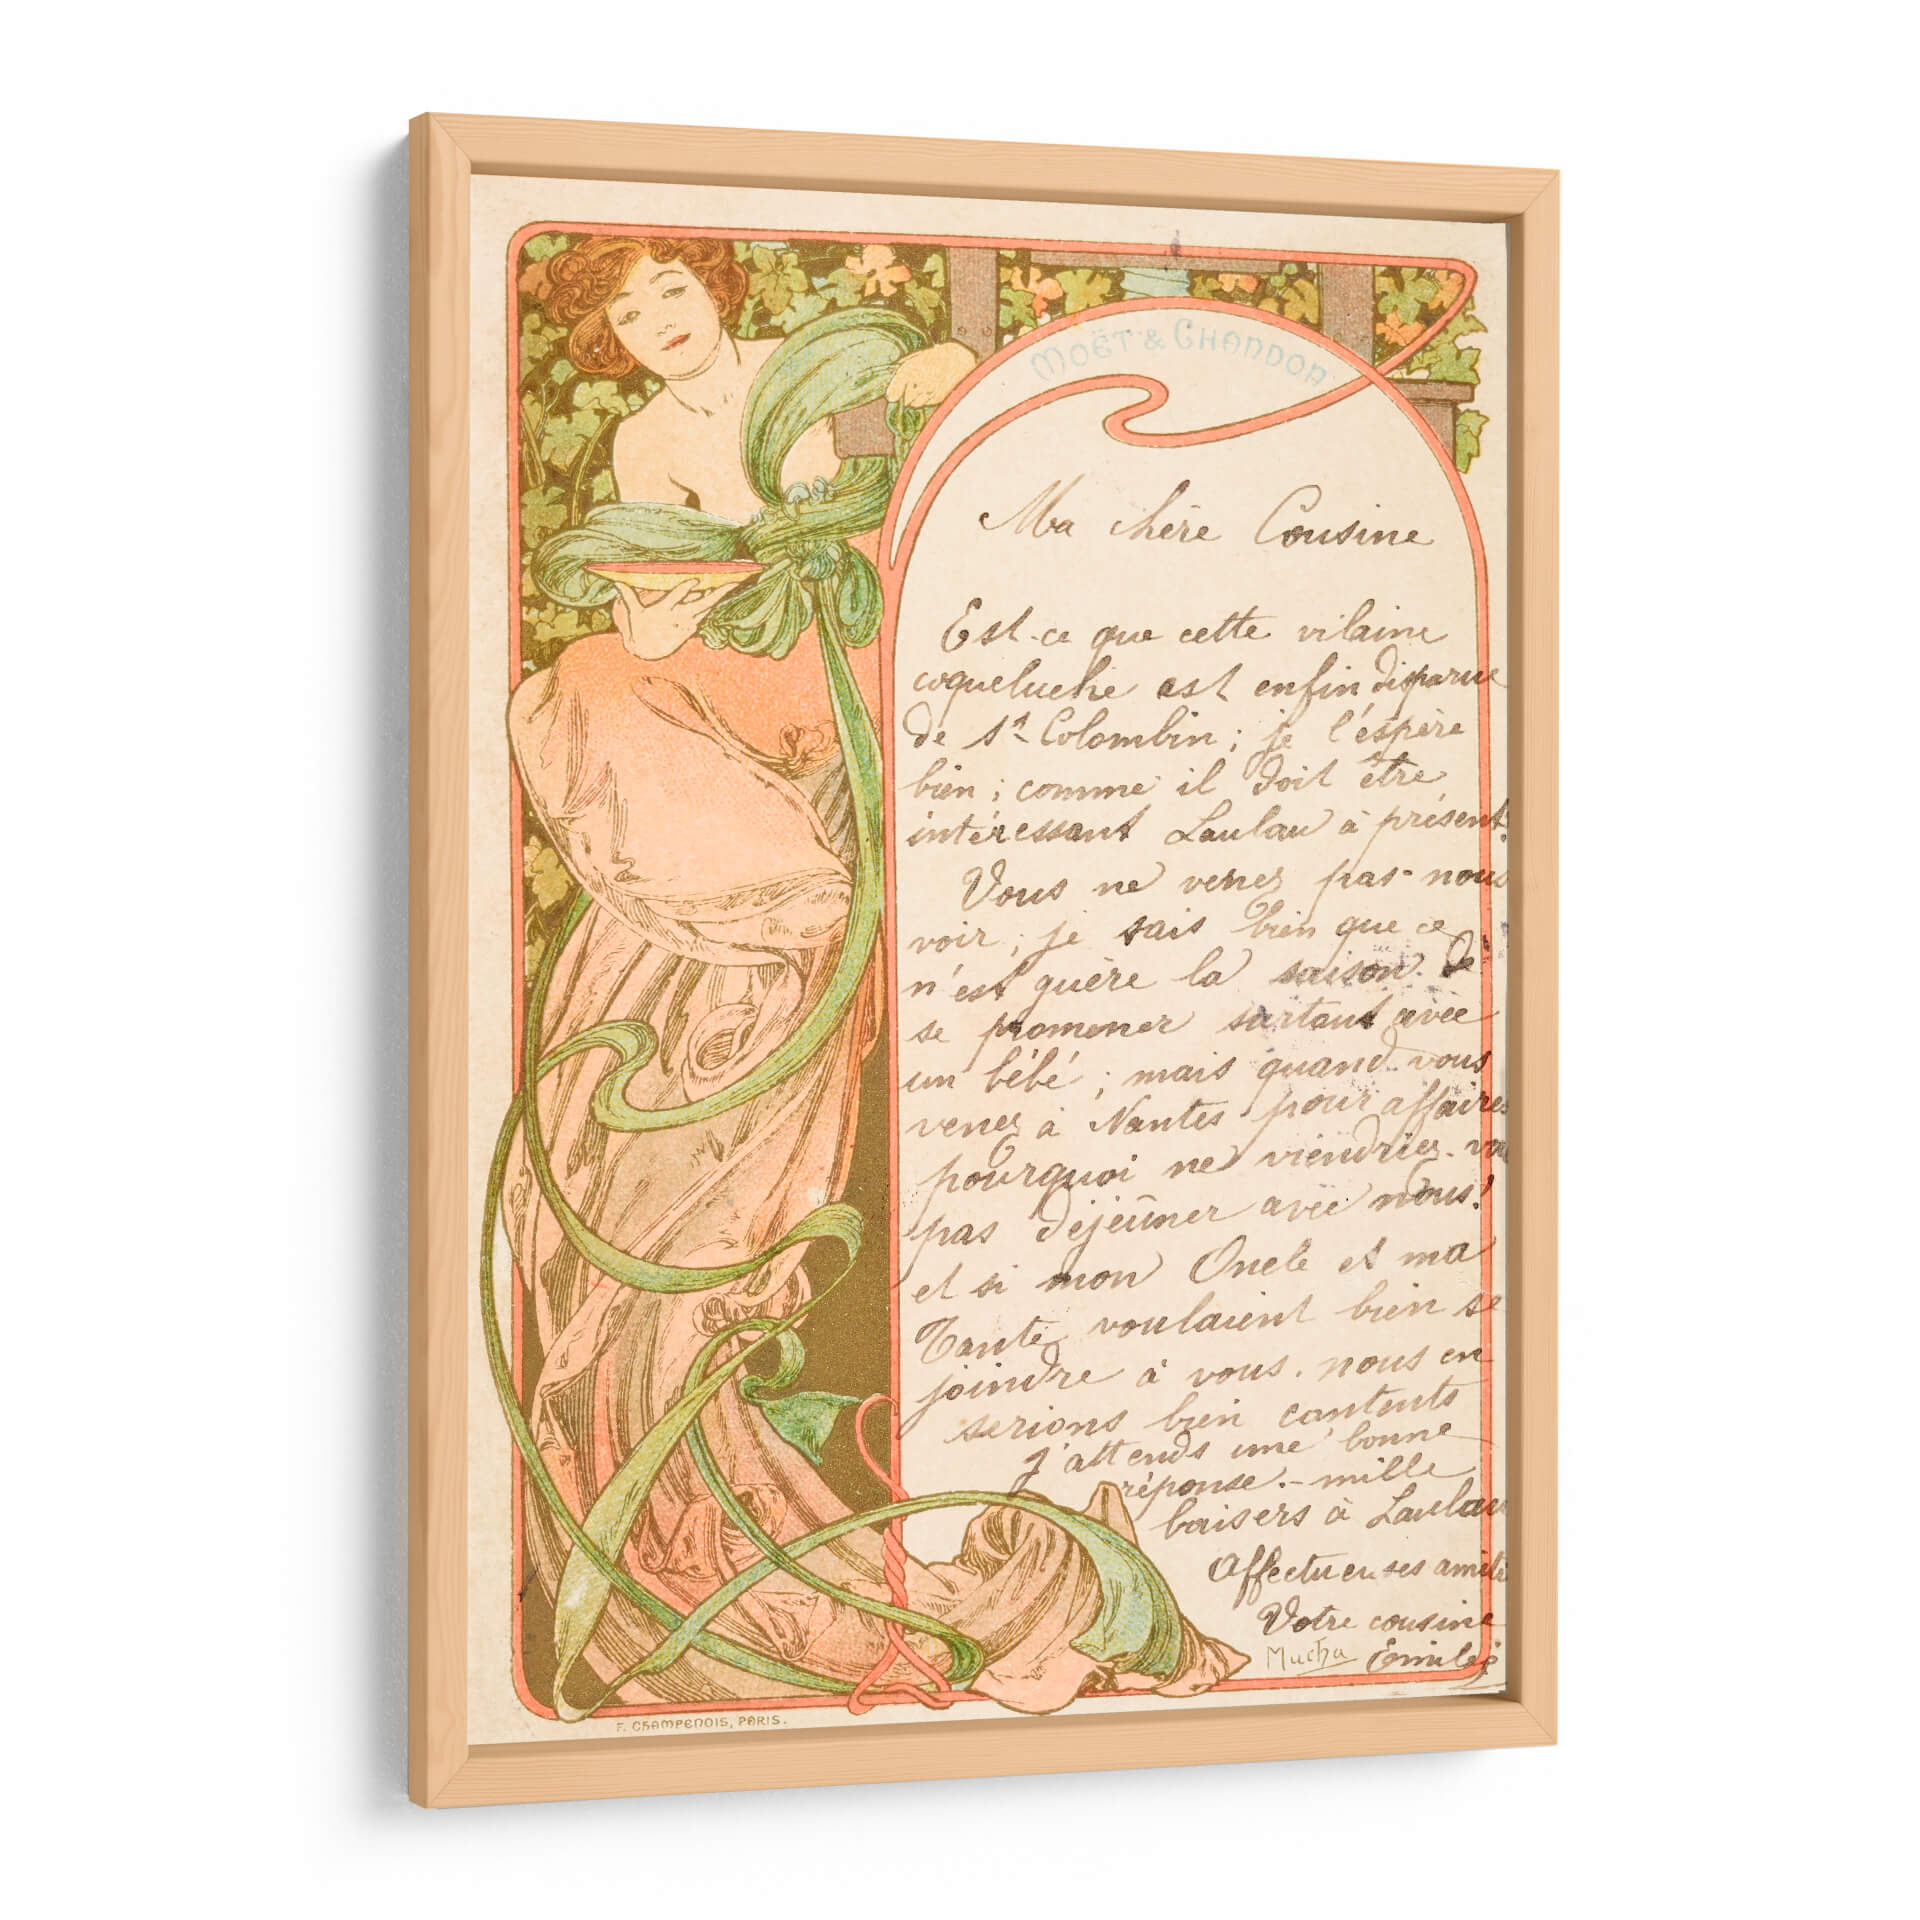 MOËT & CHANDON
Ma chère Cousine
Est-ce que cette vilaine
coqueluche est enfin disparue
de St Colombin ; je l'espère
bien ; comme il doit être
intéressant Laulau à présent.
Vous ne venez pas nous
voir, je sais bien que ce
n'est guère la saison de
se promener surtout avec
un bébé ; mais quand vous
venez à Nantes pour affaires
pourquoi ne viendriez-vous
pas déjeûner avec nous!
et si mon Oncle et ma
Tante voulaient bien se
joindre à vous, nous en
serions bien contents
J'attends une bonne
réponse.- mille
baisers à Laulau
Affectueuses amitiés
Votre cousine
Mucha Emilie
F. CHAMPENOIS, PARIS.